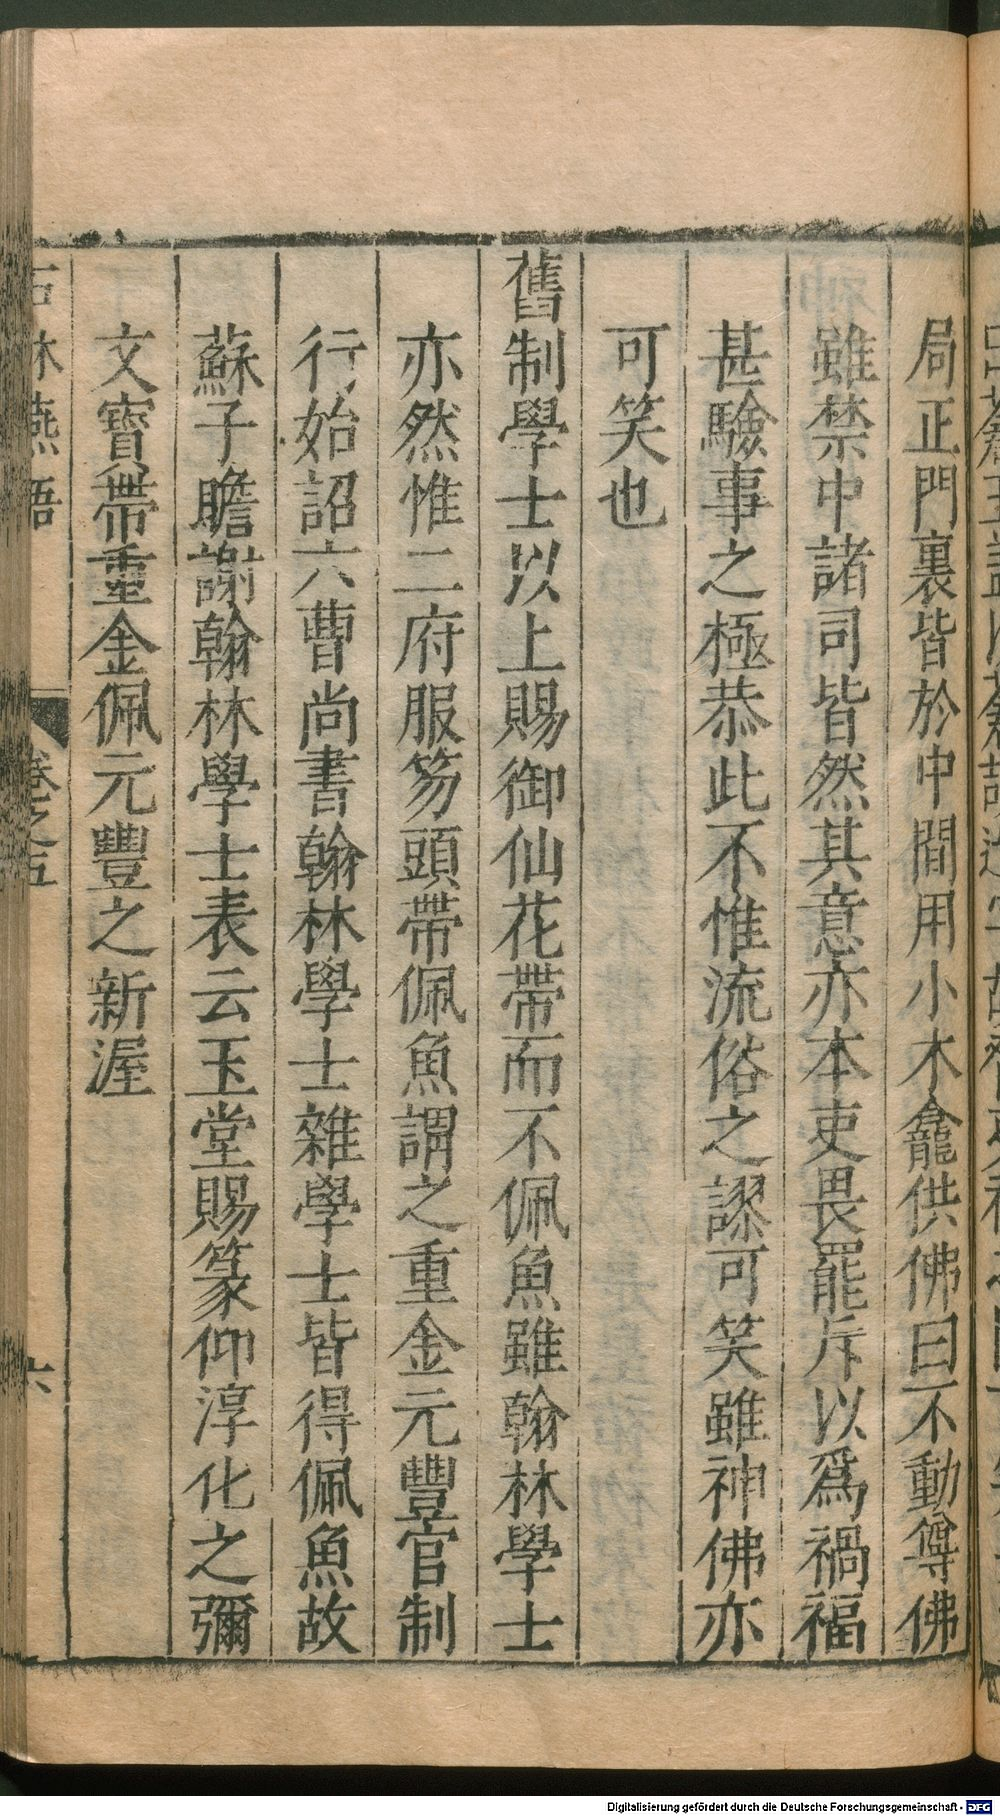 局正門裏皆於中間用小木龕供佛曰不動尊佛
雖禁中諸司皆然其意亦本吏畏罷斥以爲禍福
甚驗事之極恭此不惟流俗之謬可笑雖神佛亦
可笑也
舊制學士以上賜御仙花帶而不佩魚雖翰林學士
亦然惟二府服笏頭帶佩魚謂之重金元豐官制
行始詔六曹尚書翰林學士雜學士皆得佩魚故
蘇子瞻謝翰林學士表云玉堂賜篆仰淳化之彌
文寶帶重金佩元豐之新渥
石林燕語
卷之五
六
Digitalisierung gefördert durch die Deutsche Forschungsgemeinschaft - DFG